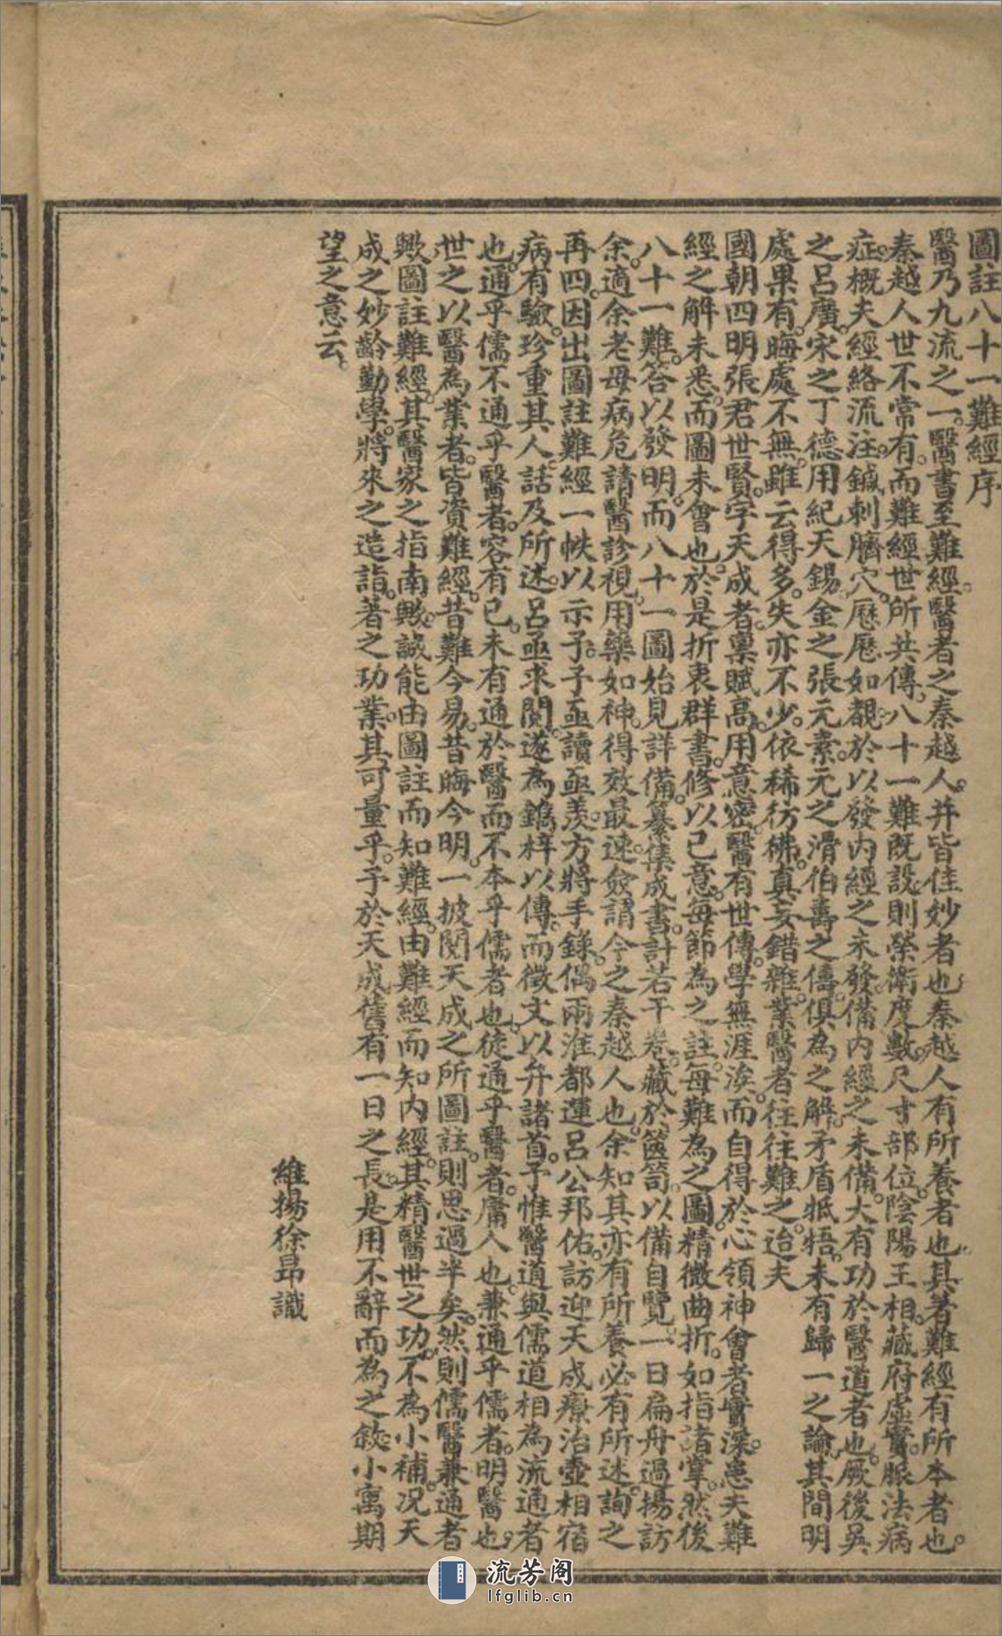 圖註八十一難經序
醫乃九流之一。醫書至難經。醫者之秦越人。幷皆佳妙者也。秦越人有所養者也。其著難經有所本者也。
秦越人世不常有。而難經世所共傳。八十一難既設。則榮衛度數。尺寸部位。陰陽王相。藏府虛實。脈法病
症。概夫經絡流注。鍼刺臍穴。歷歷如覩。於以發內經之未發。備內經之未備。大有功於醫道者也。厥後吳
之呂廣。宋之丁德用。紀天錫。金之張元素。元之滑伯壽之儔。俱為之解。矛盾牴牾。未有歸一之論。其間明
處果有。晦處不無。雖云得多。失亦不少。依稀彷彿。真妄錯雜。業醫者往往難之。迨夫
國朝四明張君世賢。字天成者。稟賦高。用意密。醫有世傳。學無涯涘。而自得於心領神會者。實深患夫難
經之解未悉。而圖未會也。於是折衷群書。修以己意。每節為之註。每難為之圖。精微曲折。如指諸掌。然後
八十一難。答以發明。而八十一圖始見詳備。纂集成書。計若干卷。藏於篋笥。以備自覽。一日扁舟過揚訪
余。適余老母病危。請醫診視。用藥如神。得效最速。僉謂今之秦越人也。余知其亦有所養。必有所述。詢之
再四。因出圖註難經一帙以示予。予亟讀亟羨。方將手錄。偶兩淮都運呂公邦佑。訪迎天成療治壺相宿
病有驗。珍重其人。話及所述。呂亟求閱。遂為鐫梓以傳。而徵文以弁諸首。予惟醫道與儒道相為流通者
也。通乎儒不通乎醫者。容有已。未有通於醫而不本乎儒者也。徒通乎醫者。庸人也。兼通乎儒者。明醫也。
世之以醫為業者。皆資難經。昔難今易。昔晦今明。一披閱天成之所圖註。則思過半矣。然則儒醫兼通者
歟。圖註難經。其醫家之指南歟。誠能由圖註而知難經。由難經而知內經。其精醫世之功。不為小補。況天
成之妙齡勤學。將來之造詣。著之功業。其可量乎。予於天成舊有一日之長。是用不辭而為之敘。小寓期
望之意云。
維揚徐昂識
流芳阁
lfglib.cn